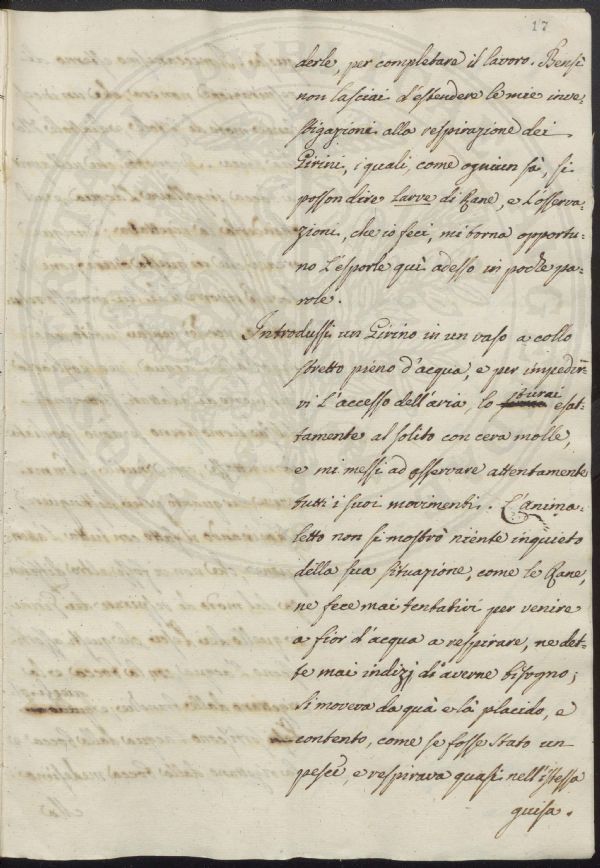 17
derle, per completare il lavoro. Bensì
non lasciai d'estendere le mie inve=
stigazioni alla respirazione dei
Girini, i quali, come ognun sà, si
posson dire Larve di Rane, e l'osserva=
zioni, che io feci, mi torna opportu=
no l'esporle quì adesso in poche pa=
role.
Introdussi un Girino in un vaso a collo
stretto pieno d'acqua, e per impedir=
vi l'accesso dell'aria, lo turai esat=
tamente al solito con cera molle,
e mi messi ad osservare attentamente
tutti i suoi movimenti. L'anima=
letto non si mostrò niente inquieto
della sua situazione, come le Rane,
ne fece mai tentativi per venire
a fior d'acqua a respirare, ne det=
te mai indizj di averne bisogno;
si moveva da quà e là placido, e
contento, come se fosse stato un
pesce, e respirava quasi nell'istessa
guisa.